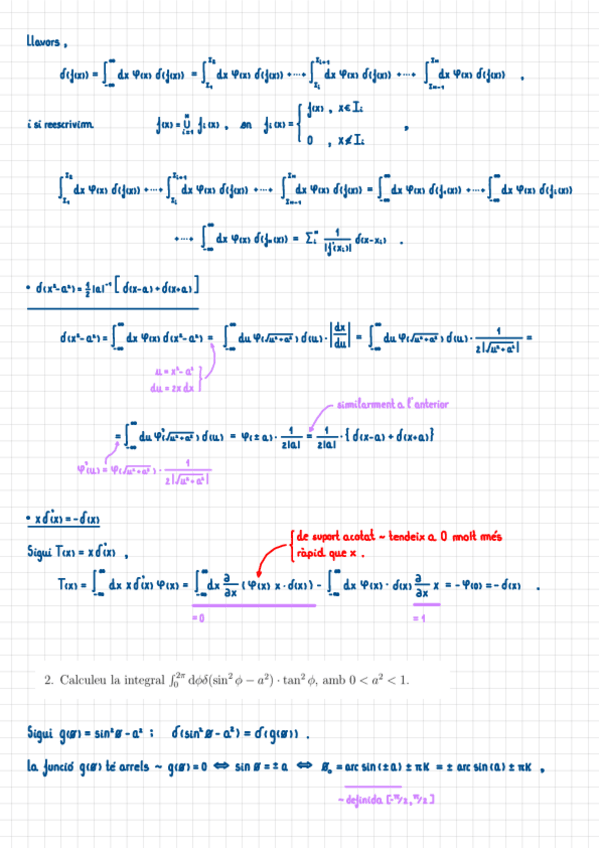 Llavors,
δ(f(x)) = ∫_{-∞}^{∞} dx φ(x) δ(f(x)) = ∫_{x_1}^{x_2} dx φ(x) δ(f(x)) + ··· + ∫_{x_i}^{x_{i+1}} dx φ(x) δ(f(x)) + ··· + ∫_{x_{n-1}}^{x_n} dx φ(x) δ(f(x)) ,
i si reescrivim f(x) = ⋃_{i=1}^{n} f_i(x) , on f_i(x) = { f(x) , x ∈ I_i
0 , x ∉ I_i ,
∫_{x_1}^{x_2} dx φ(x) δ(f(x)) + ··· + ∫_{x_i}^{x_{i+1}} dx φ(x) δ(f(x)) + ··· + ∫_{x_{n-1}}^{x_n} dx φ(x) δ(f(x)) = ∫_{-∞}^{∞} dx φ(x) δ(f_1(x)) + ··· + ∫_{-∞}^{∞} dx φ(x) δ(f_i(x))
+ ··· + ∫_{-∞}^{∞} dx φ(x) δ(f_n(x)) = Σ_i^n 1/|f'(x_i)| δ(x-x_i) .
• δ(x²-a²) = 1/2 |a|⁻¹ [ δ(x-a) + δ(x+a) ]
δ(x²-a²) = ∫_{-∞}^{∞} dx φ(x) δ(x²-a²) = ∫_{-∞}^{∞} du φ(√(u²+a²)) δ(u) · |dx/du| = ∫_{-∞}^{∞} du φ(√(u²+a²)) δ(u) · 1/(2|√(u²+a²)|) =
u = x² - a²
du = 2x dx
similarment a l'anterior
= ∫_{-∞}^{∞} du φ̃(√(u²+a²)) δ(u) = φ(±a) · 1/(2|a|) = 1/(2|a|) · { δ(x-a) + δ(x+a) }
φ̃(u) = φ(√(u²+a²)) · 1/(2|√(u²+a²)|)
• xδ'(x) = -δ(x)
de suport acotat ~ tendeix a 0 molt més
Sigui T(x) = xδ'(x) ,
ràpid que x .
T(x) = ∫_{-∞}^{∞} dx xδ'(x) φ(x) = ∫_{-∞}^{∞} dx ∂/∂x (φ(x) x · δ(x)) - ∫_{-∞}^{∞} dx φ(x) · δ(x) ∂/∂x x = -φ(0) = -δ(x) .
= 0
= 1
2. Calculeu la integral ∫_0^{2π} dϕδ(sin² ϕ − a²) · tan² ϕ, amb 0 < a² < 1.
Sigui g(ø) = sin²ø - a² ; δ(sin²ø - a²) = δ(g(ø)) .
la funció g(ø) té arrels ~ g(ø) = 0 ⇔ sin ø = ± a ⇔ ø₀ = arc sin (±a) ± πk = ± arc sin (a) ± πk ,
~ definida [-π/2, π/2]